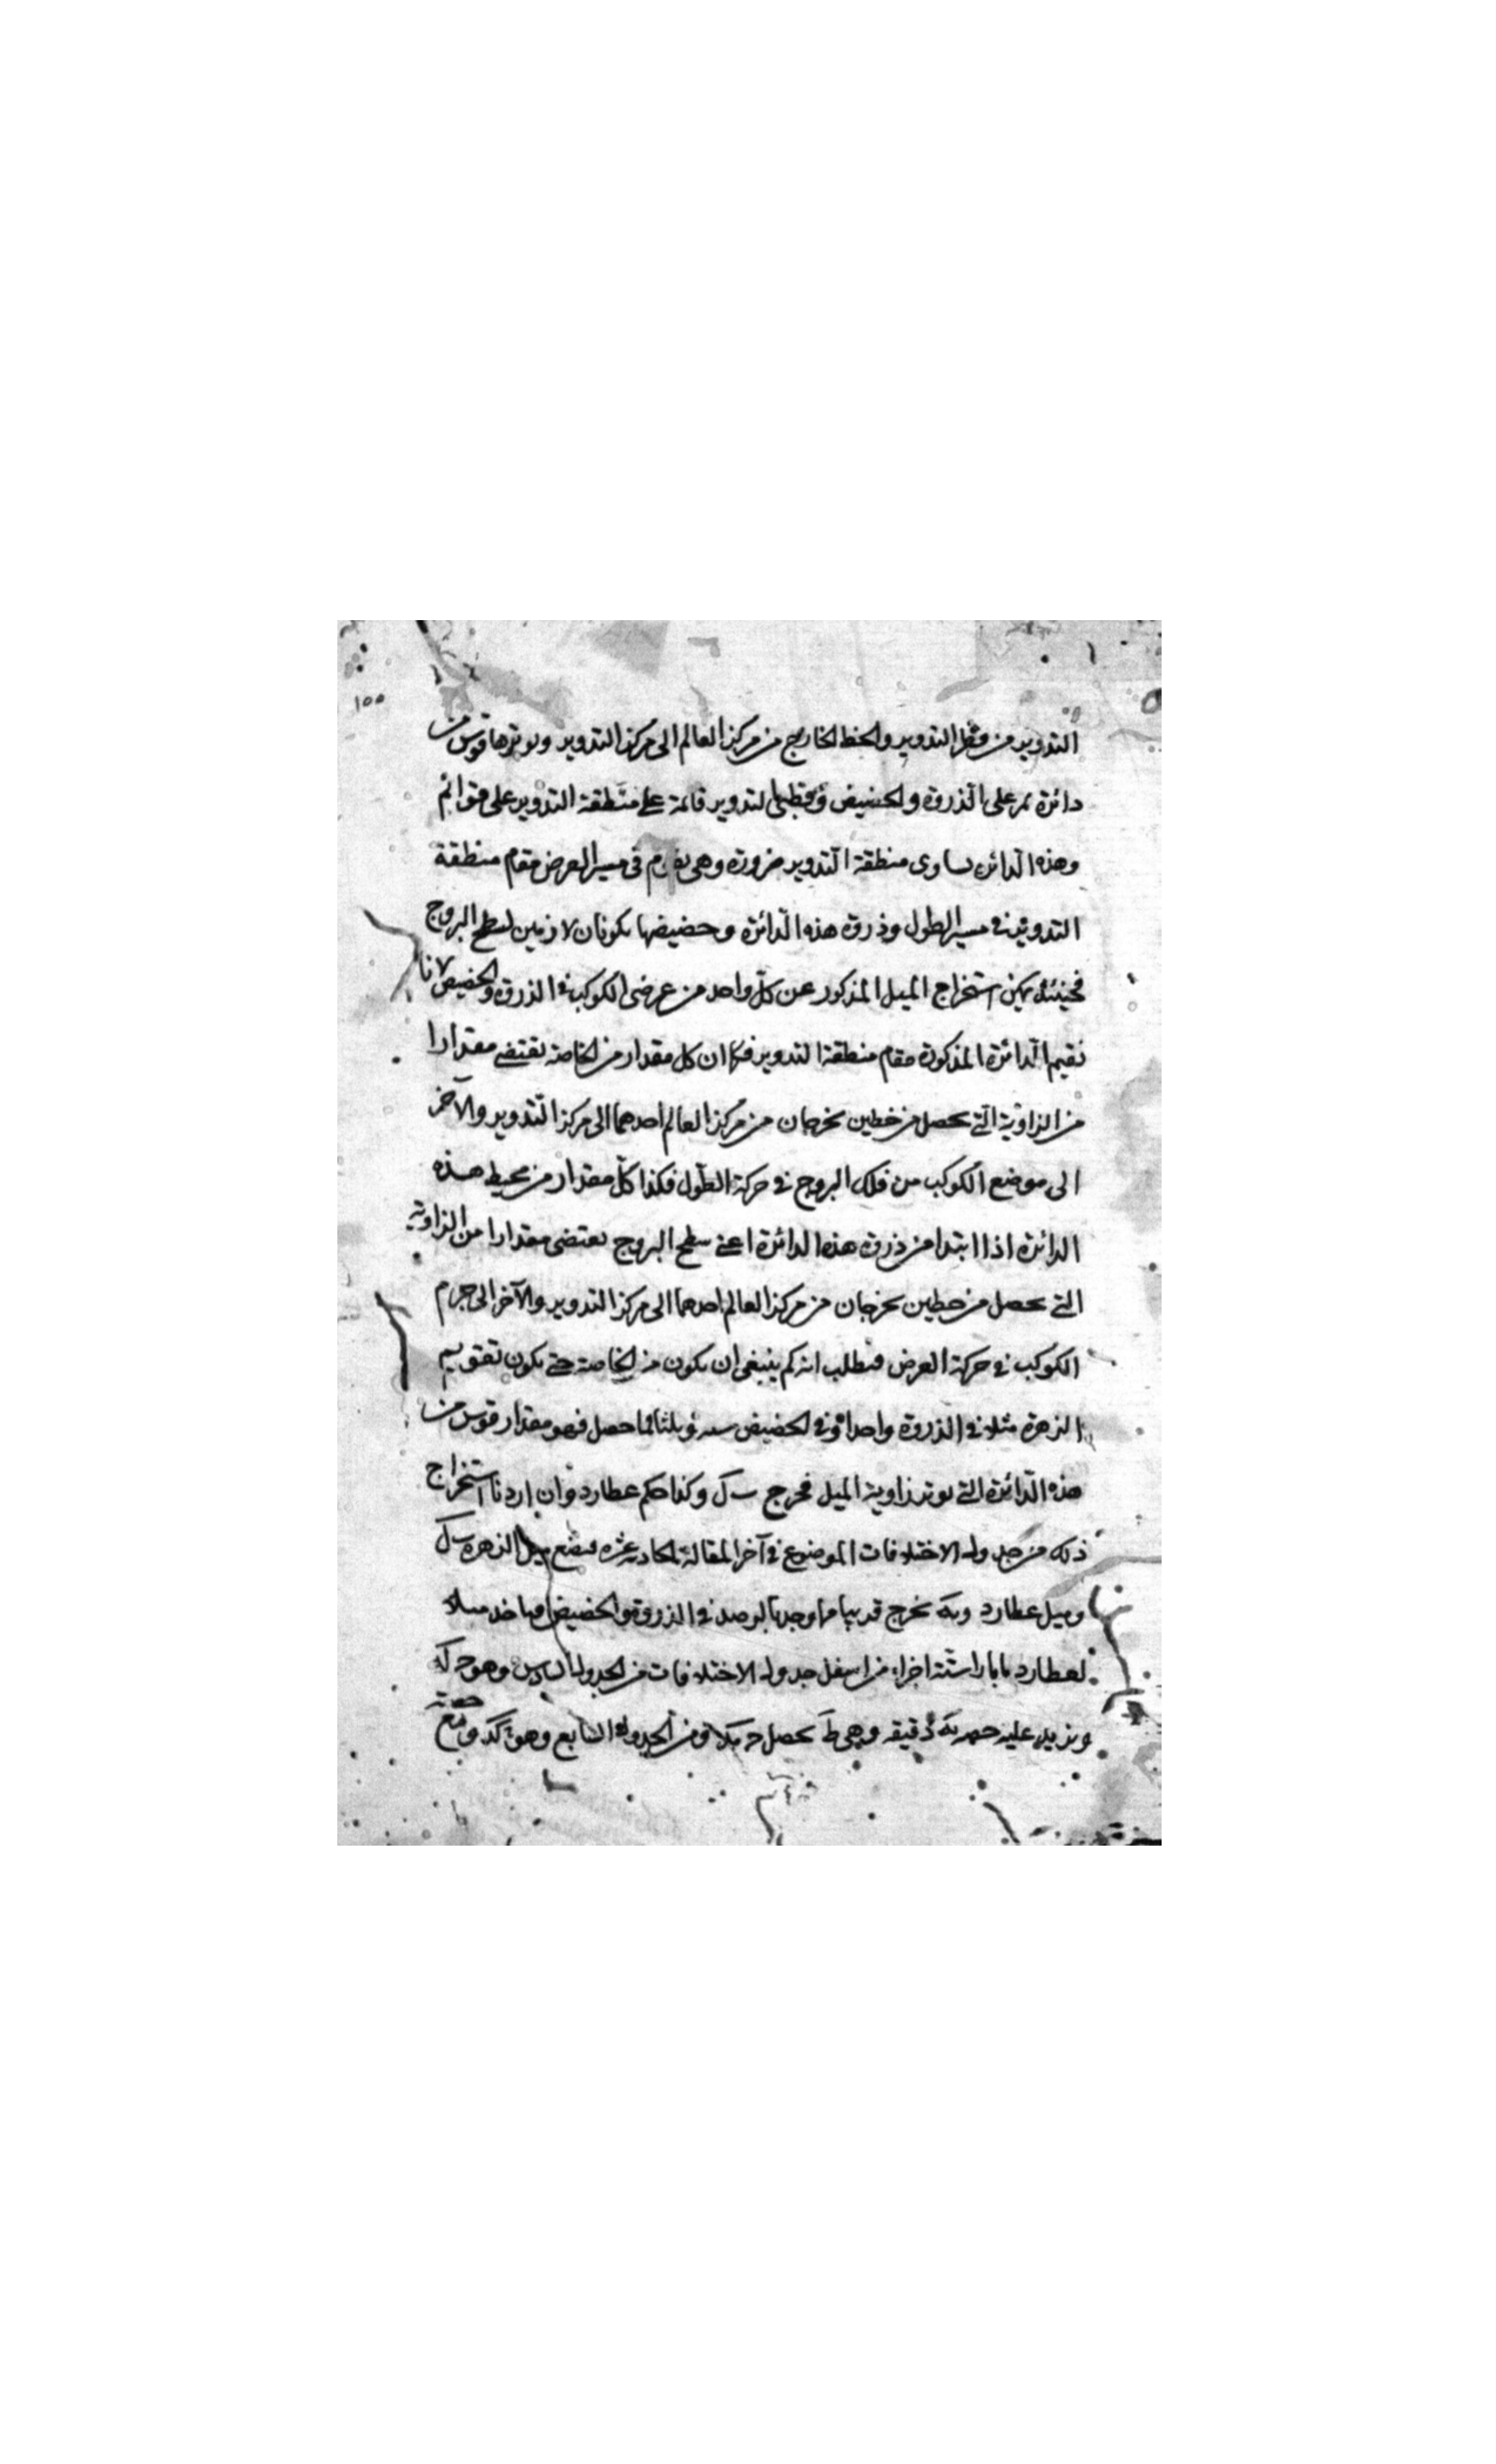 ١٥٥
التدوير من قطر التدوير والخط الخارج من مركز العالم الى مركز التدوير ويوترها قوس من
دائرة تمر على الذروة والحضيض وقطبي التدوير قائمة على منطقة التدوير على قوائم
وهذه الدائرة تساوى منطقة التدوير ضرورة وهى تقوم فى مسير العرض مقام منطقة
التدوير فى مسير الطول وذروة هذه الدائرة وحضيضها يكونان لازمين لسطح البروج
فحينئذ يمكن استخراج الميل المذكور عن كل واحد من عرضى الكوكب فى الذروة والحضيض لانا
نقيم الدائرة المذكورة مقام منطقة التدوير فكما ان كل مقدار من الخاصة يقتضى مقدارا
من الزاوية التى تحصل من خطين يخرجان من مركز العالم احدهما الى مركز التدوير والآخر
الى موضع الكوكب من فلك البروج فى حركة الطول فكذا كل مقدار من محيط هذه
الدائرة اذا ابتدا من ذروة هذه الدائرة اعنى سطح البروج يقتضى مقدارا من الزاوية
التى تحصل من خطين يخرجان من مركز العالم احدهما الى مركز التدوير والآخر الى جرم
الكوكب فى حركة العرض فنطلب انه كم ينبغى ان يكون من الخاصة حتى يكون تقويم
الزهرة مثلا فى الذروة واحدا وفى الحضيض ستة وثلثا فما حصل فهو مقدار قوس من
هذه الدائرة التى يوتر زاوية الميل فخرج ب ل وكذا حكم عطارد وان اردنا استخراج
ذلك من جدول الاختلافات الموضوع فى آخر المقالة الحادية عشرة فنضع ميل الزهرة ب ل
وميل عطارد و يه يخرج قريبا مما وجدنا بالرصد فى الذروة والحضيض فناخذ مثلا
لعطارد ما بازاء ستة اجزاء من اسفل جدول الاختلافات من الجدول السادس وهو
ونزيد عليه حصة يه دقيقة وهى ط تحصل ومن الجدول السابع وهو كد ومع
حصة